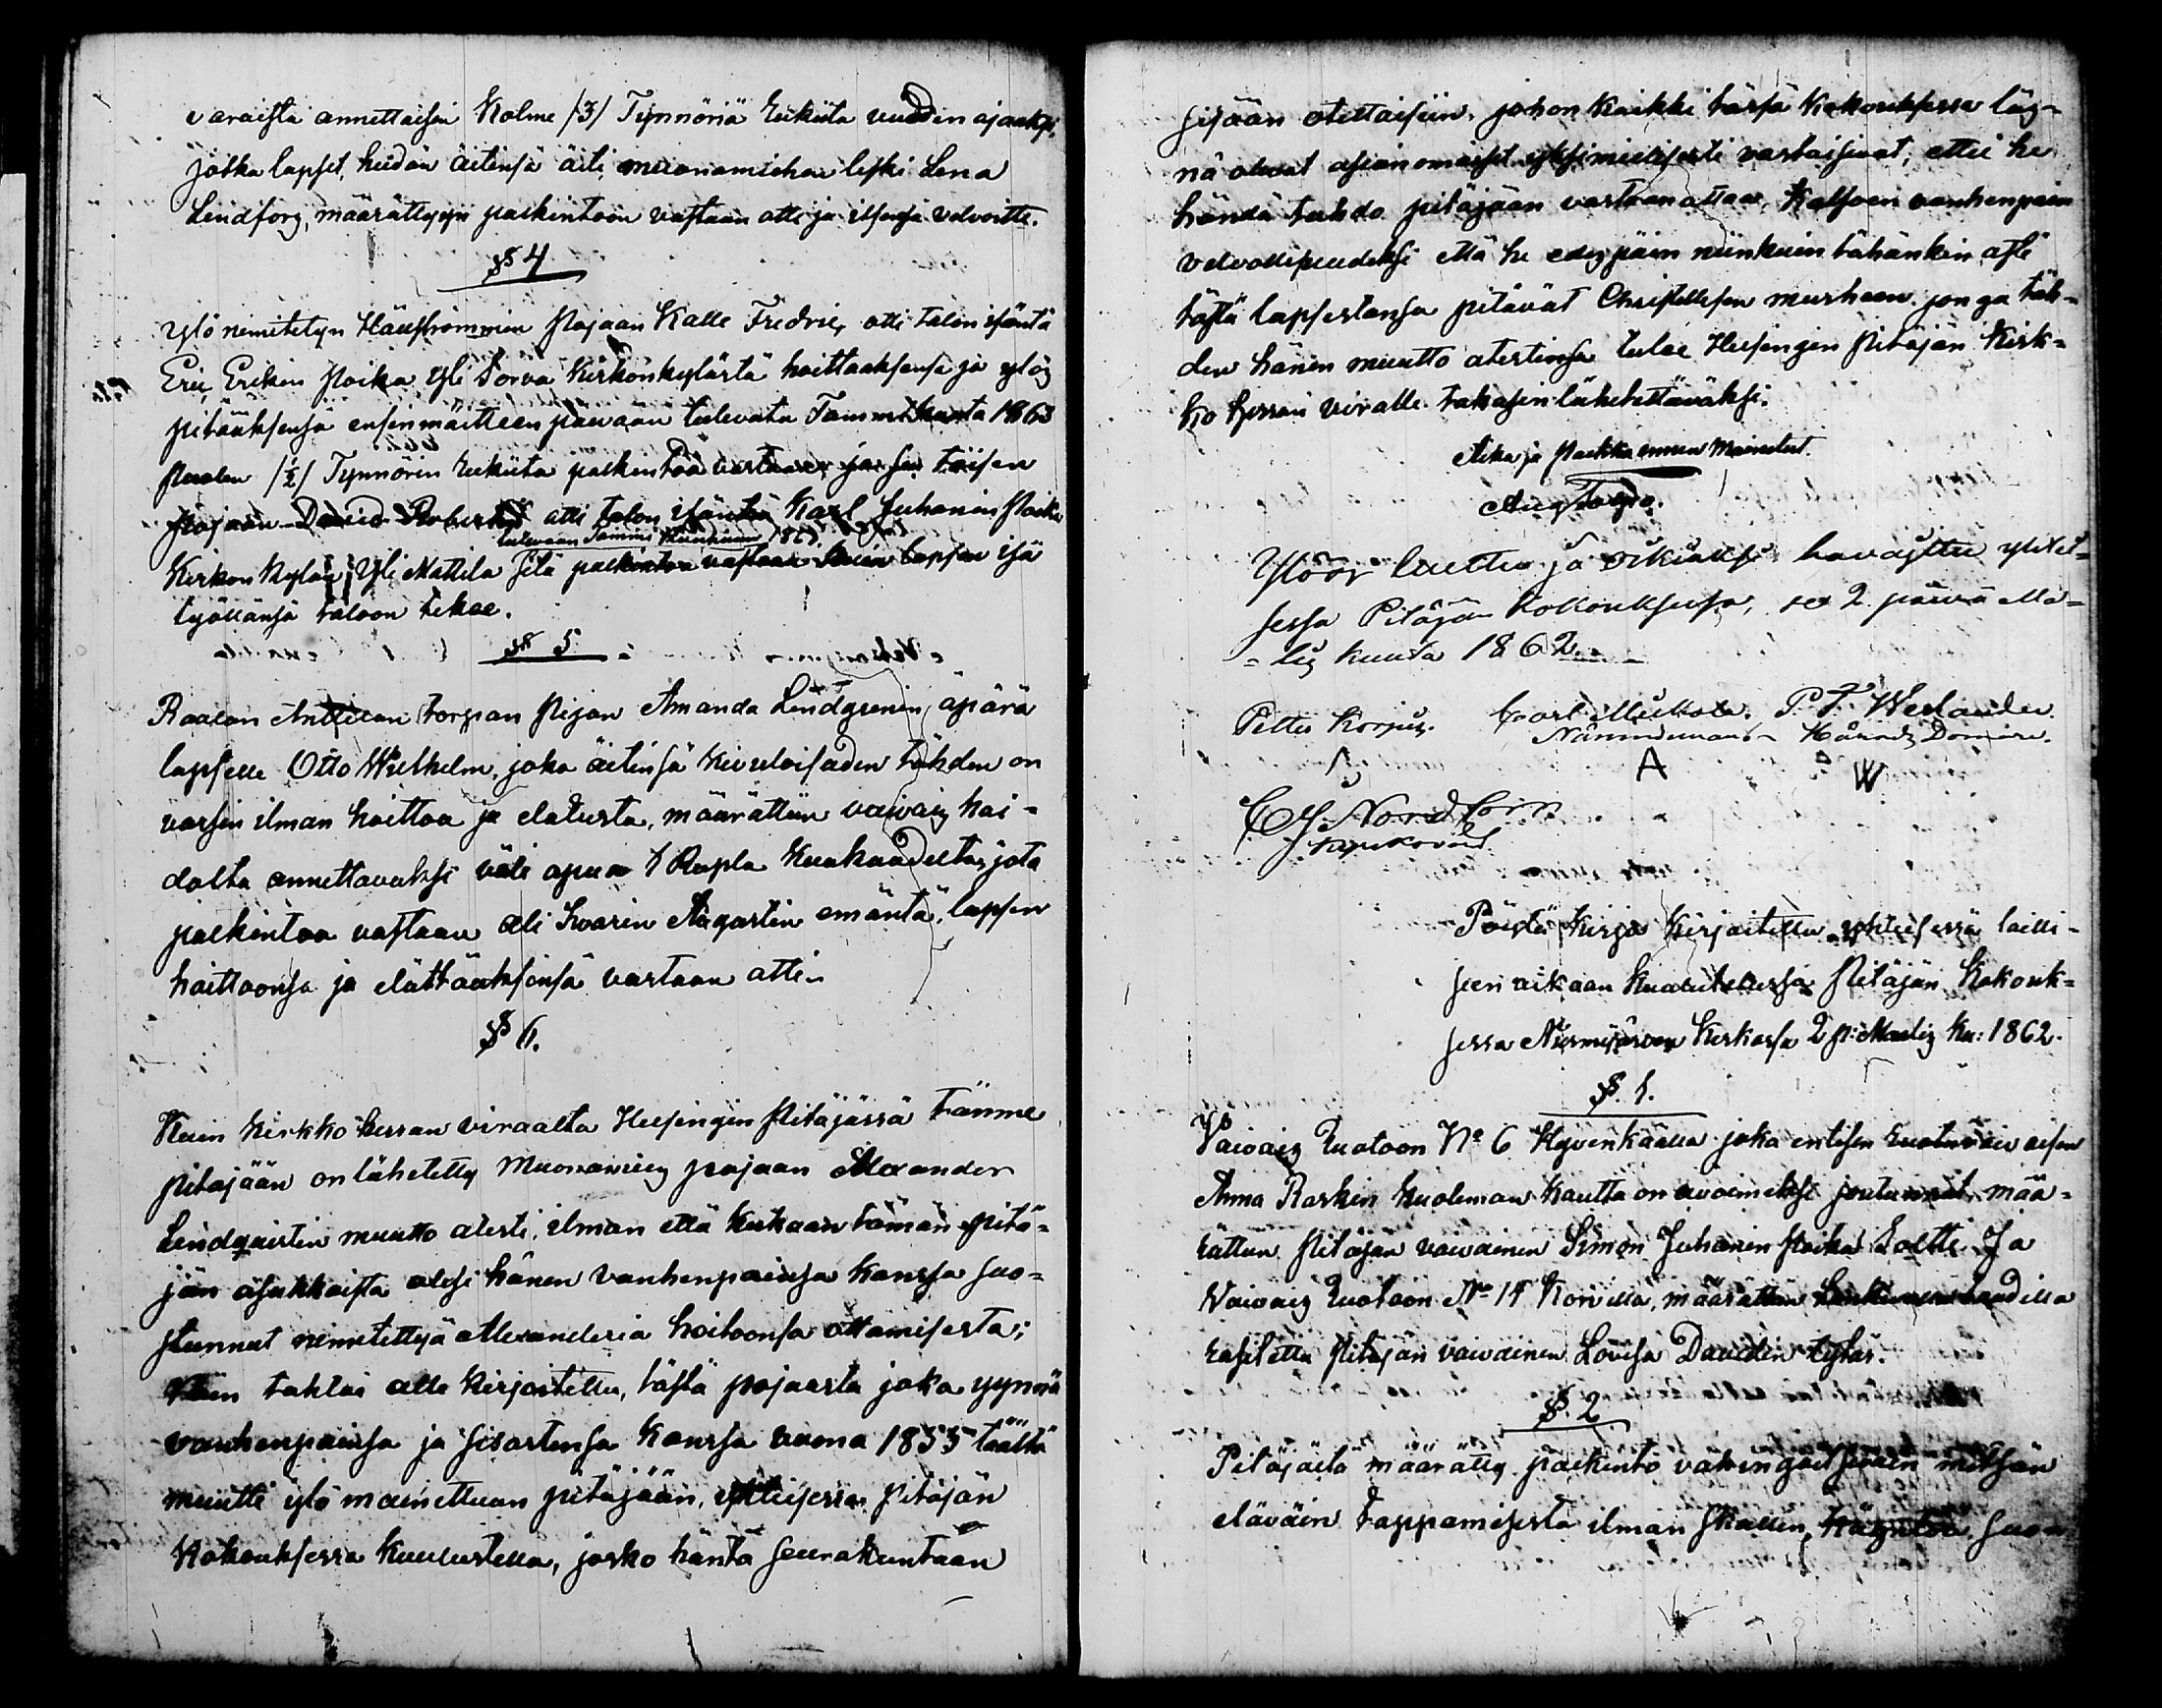 varaista annettaisin Kolme /3/ Tynnöriä Rukiita vuoden ajaaksi,
jotka lapset, heidän äitinsä äiti, muonamiehen leski Lena
Lindforg, määrättyyn palkintoon vastaan otti ja itsensä velvoitti.
§ 4
Ylö nimitetyn Häufströmmin Pojaan Kalle Fredric, otti talon isäntä
Eric Erikin Poika Yli Torva Kirkonkylästä hoittaaksensa ja ylös
pitääksensä ensinmäitteen päivään tulevata Tammikuuta 1863
Puolen /½/ Tynnörin Rukiita palkintoa vastaan, ja sen toisen
Pojaan David Robert otti talon isäntä Karl Juhanin Poika
tulevaan Tammi Kuuhuun 1863
Kirkon Kylän Yli Mattila sitä palkintoa vastaan kuin lapsen isä
työllänsä taloon tekee.
§ 5
Raalan Anttilan torpan Pijan Amanda Lindgrenin äpärä
lapselle Otto Wilhelm, joka äitinsä kivuloisuden tähden on
varsin ilman hoittoa ja elatusta, määrättiin vaivais hoi-
dolta annettavaksi väli apua 1 Rupla Kuukaudelta, jota
palkintoa vastaan oli Svarin Augartin emäntä, lapsen
hoittoonsa ja elättääksensä vastaan otti.
§ 6.
Kuin Kirkko herran viraalta Helsingin Pitäjässä tänne
pitäjään on lähetetty Muonamies pojaan Alexander
Lindqvistin muutto atesti, ilman että kukaan tämän pitä-
jän asukkaista olisi hänen vanhenpainsa kanssa suo-
stunnut nimitettyä Alexanderia hoitoonsa ottamisesta;
Niin tahtoi alle kirjoitettu, tästä pojaasta joka ynnä
vanhenpainsa ja sisartensa kanssa vuona 1855 täältä
muutti ylö mainittuun pitäjään, yhteisessä pitäjän
Kokouksessa kuulustella, josko häntä seurakuntaan
sisään otettaisiin, johon kaikki tässä Kokouksessa läs-
nä olevat asianomaiset yksimielisesti vastaisivat, ettei he
händä tahdo pitäjään vastaanottaa, Katsoen vanhenpain
velvollisuudeksi että he edespäin niinkuin tähänkin asti
tästä lapsestansa pitävät Christillisen murheen, jonga täh-
den hänen muutto atestinsa tulee Helsingin Pitäjän Kirk-
ko herran viralle takasin lähetettäväksi.
Aika ja Paikka ennen Mainitut.
Aug Fogro.
Ylöös luettu ja oikiaksi havaittu yhtei-
sessä Pitäjän Kokouksessa, se 2 päivä Ma-
= lis kuuta 1862.
Petter Korpus. Carl Mickola. P. F. Weslander
Nämndeman Härads Domare.
A W
C J Nordfors
Pöistä Kirja Kirjoitettu yhteisessä lailli-
seen aikaan kuulutetussa Pitäjän Kokouk-
sessa Nurmijärven Kirkossa 2 p: Maalis Ku: 1862.
§ 1.
Vaivais Ruotoon No 6 Hyvenkäällä joka entisen ruotuvaivaisen
Anna Raskin kuoleman kautta on avoimeksi joutunnut, mää-
rättiin Pitäjän vaivainen Simon Juhanin Poika Soltti. Ja
Vaivais Ruotoon No 14 Korvilla, määrättiin
Pitäjän vaivainen Lovisa Davidin tytär.
§ 2
Pitäjältä määrätty palkinto vahingoitsevain metsän
eläväin tappamisesta ilman skallin käyntöä suo-